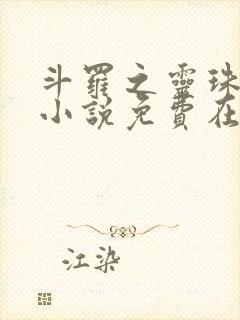 斗羅之靈珠
小說免費在
江染